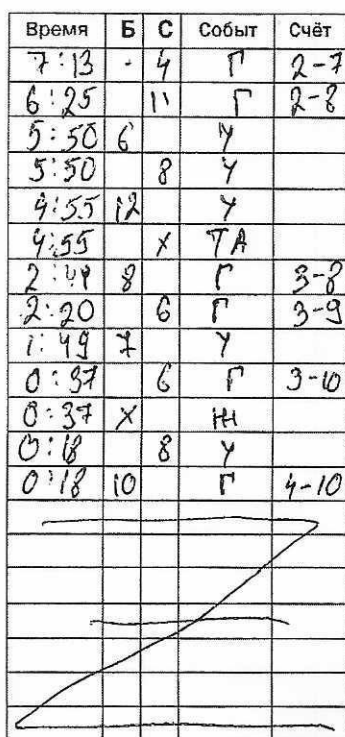 Время Б С Событ Счёт
7:13 4 Г 2-7
6:25 11 Г 2-8
5:50 6 У
5:50 8 У
4:55 12 У
4:55 X ТА
2:41 8 Г 3-8
2:20 6 Г 3-9
1:49 7 У
0:37 6 Г 3-10
0:37 X Ж
0:18 8 У
0:18 10 Г 4-10